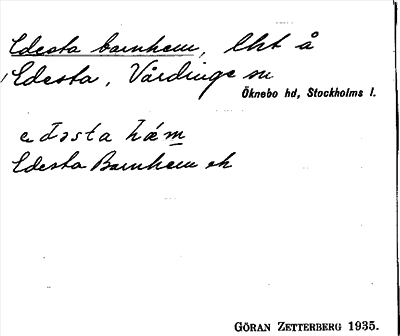 Edesta barnhem, lht å
Edesta, Vårdinge sn
Öknebo hd, Stockholms l.
edəsta hǽm
Edesta Barnhem ek
GÖRAN ZETTERBERG 1935.